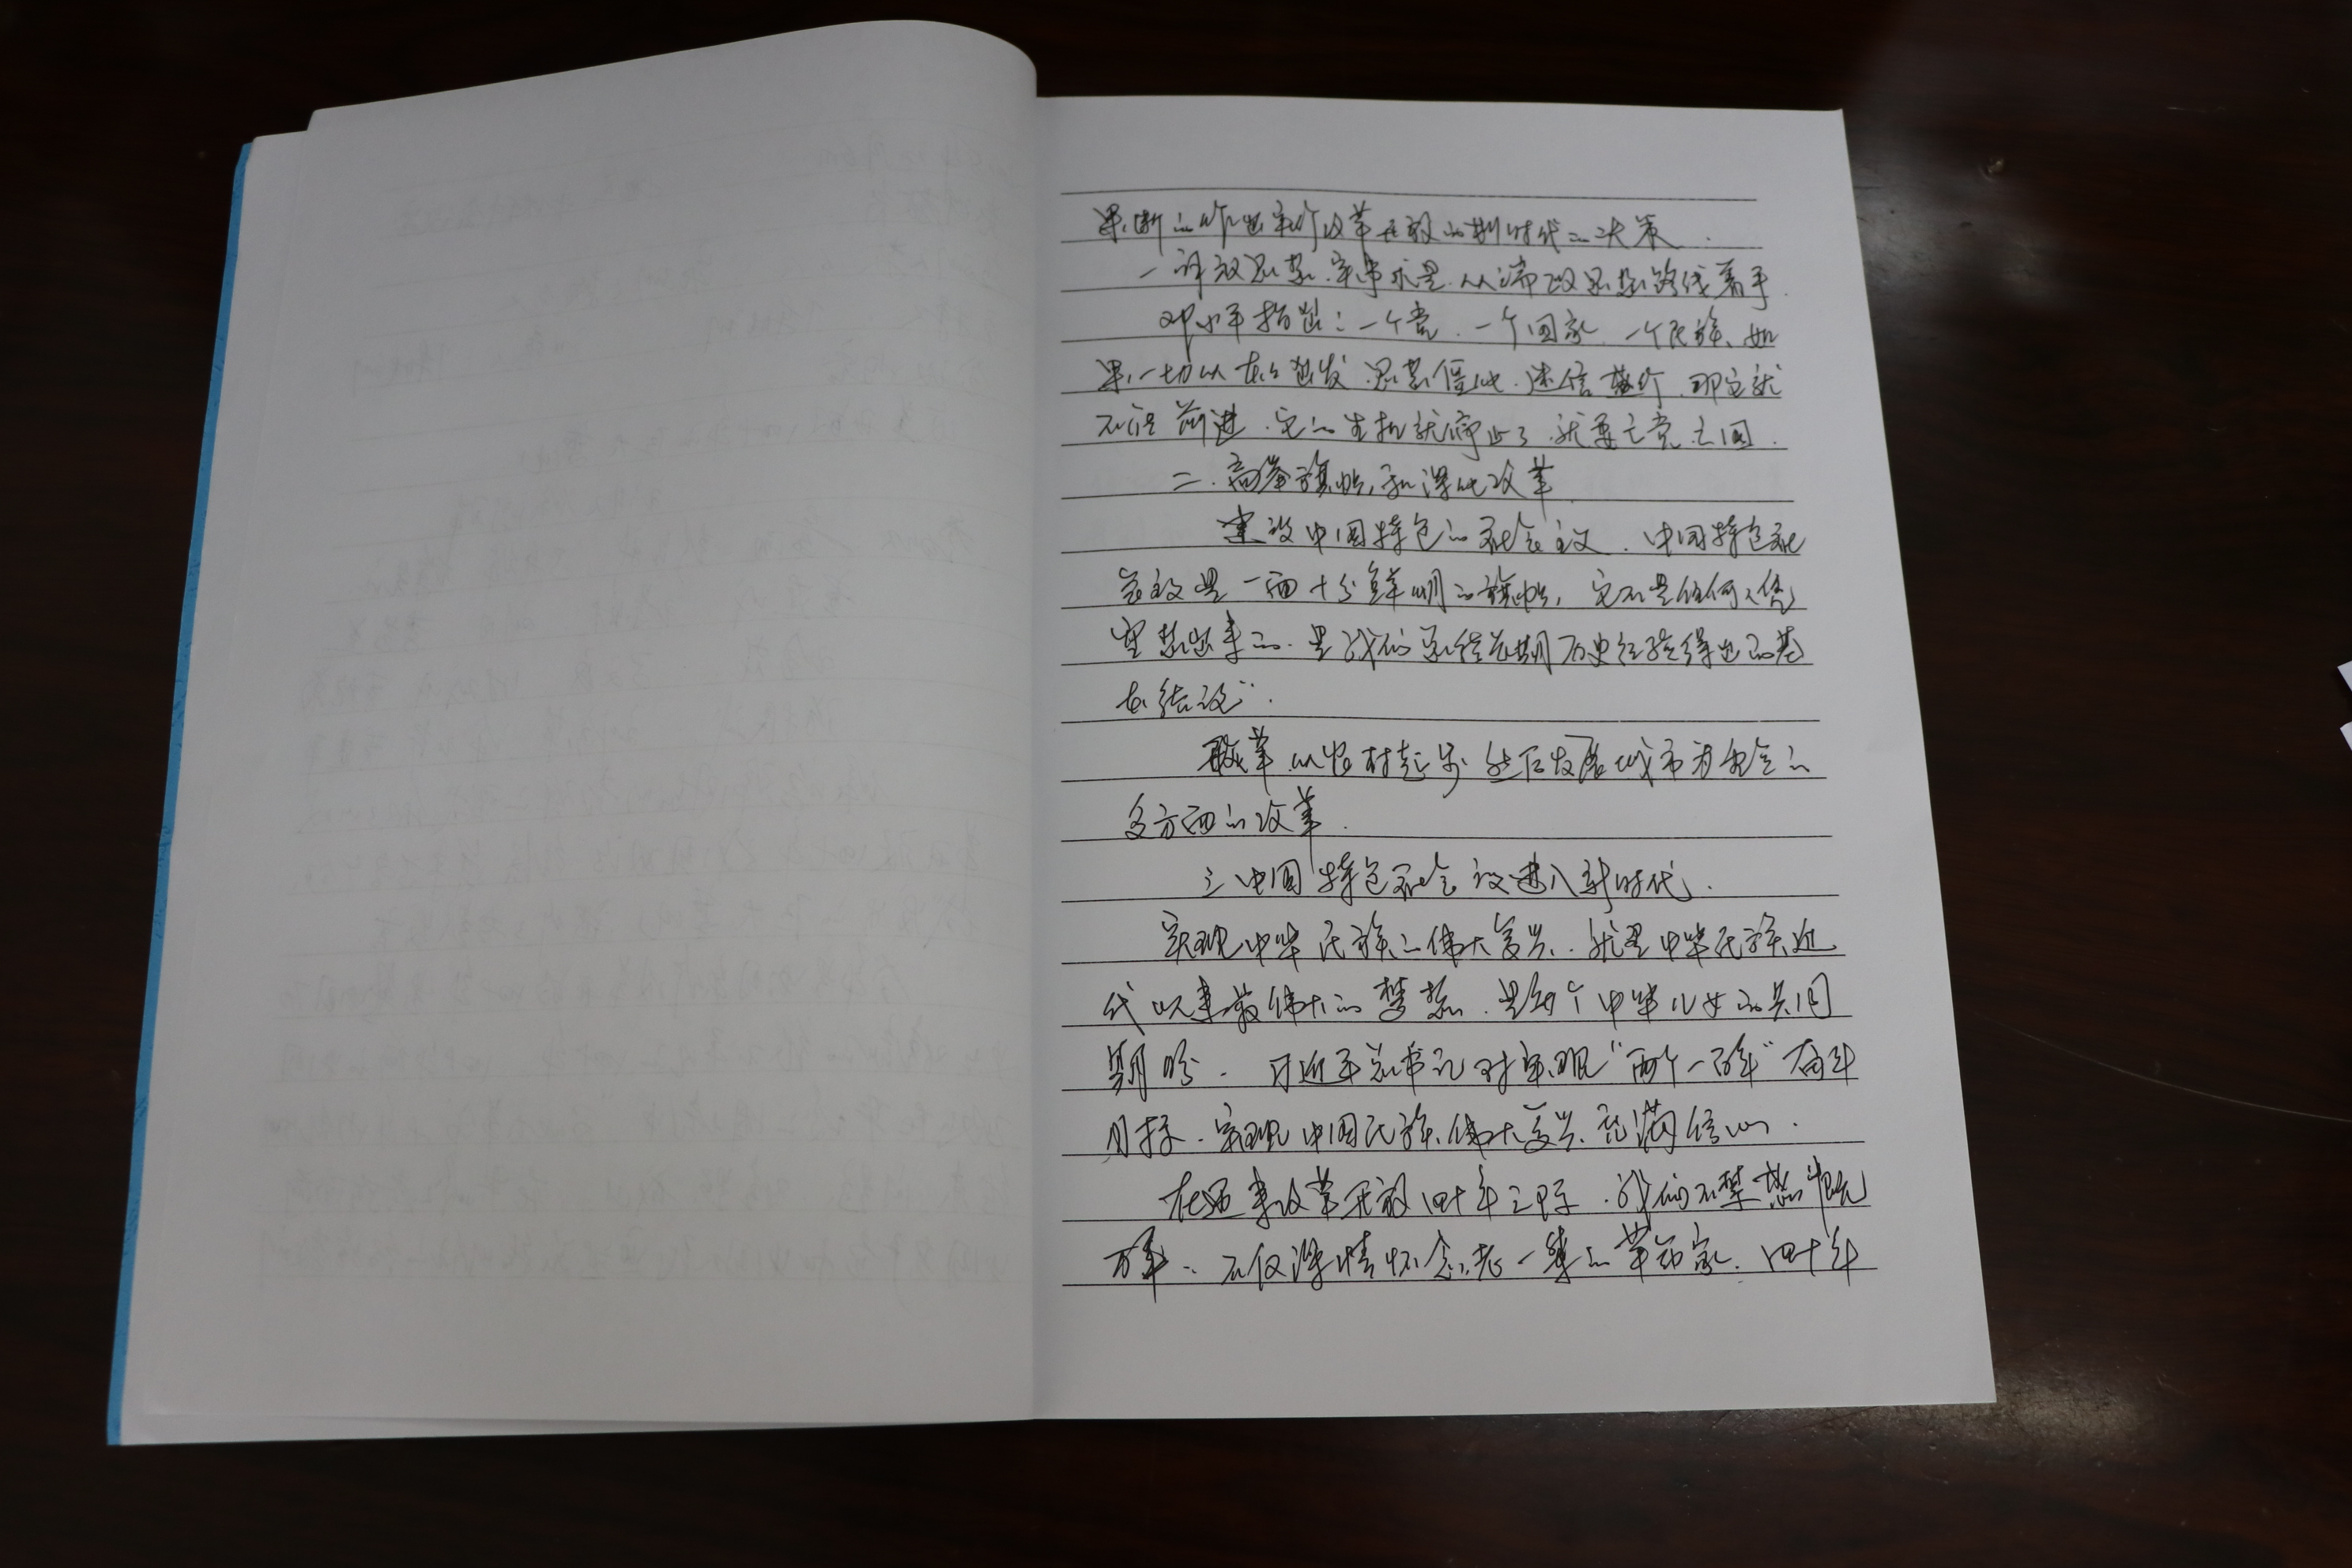 果断的作出实行改革开放的划时代的决策.
一解放思想.实事求是.从端正思想路线着手.
邓小平指出:一个党.一个国家.一个民族、如
果一切从本本出发.思想僵化.迷信盛行.那它就
不能前进.它的生机就停止了.就要亡党亡国.
二.高举旗帜和深化改革
建设中国特色的社会主义.中国特色社
会主义是一面十分鲜明的旗帜,它不是任何人凭
空想出来的.是我们总结长期历史经验得出的基
本结论".
改革从农村起步.然后发展城市为重点的
多方面的改革.
三中国特色社会主义进入新时代.
实现中华民族的伟大复兴.就是中华民族近
代以来最伟大的梦想.是每个中华儿女的共同
期盼.习近平总书记对实现"两个一百年"奋斗
目标.实现中国民族伟大复兴充满信心.
在迎来改革开放四十年之际.我们不禁感慨
万千..不仅深情怀念老一辈的革命家.四十年